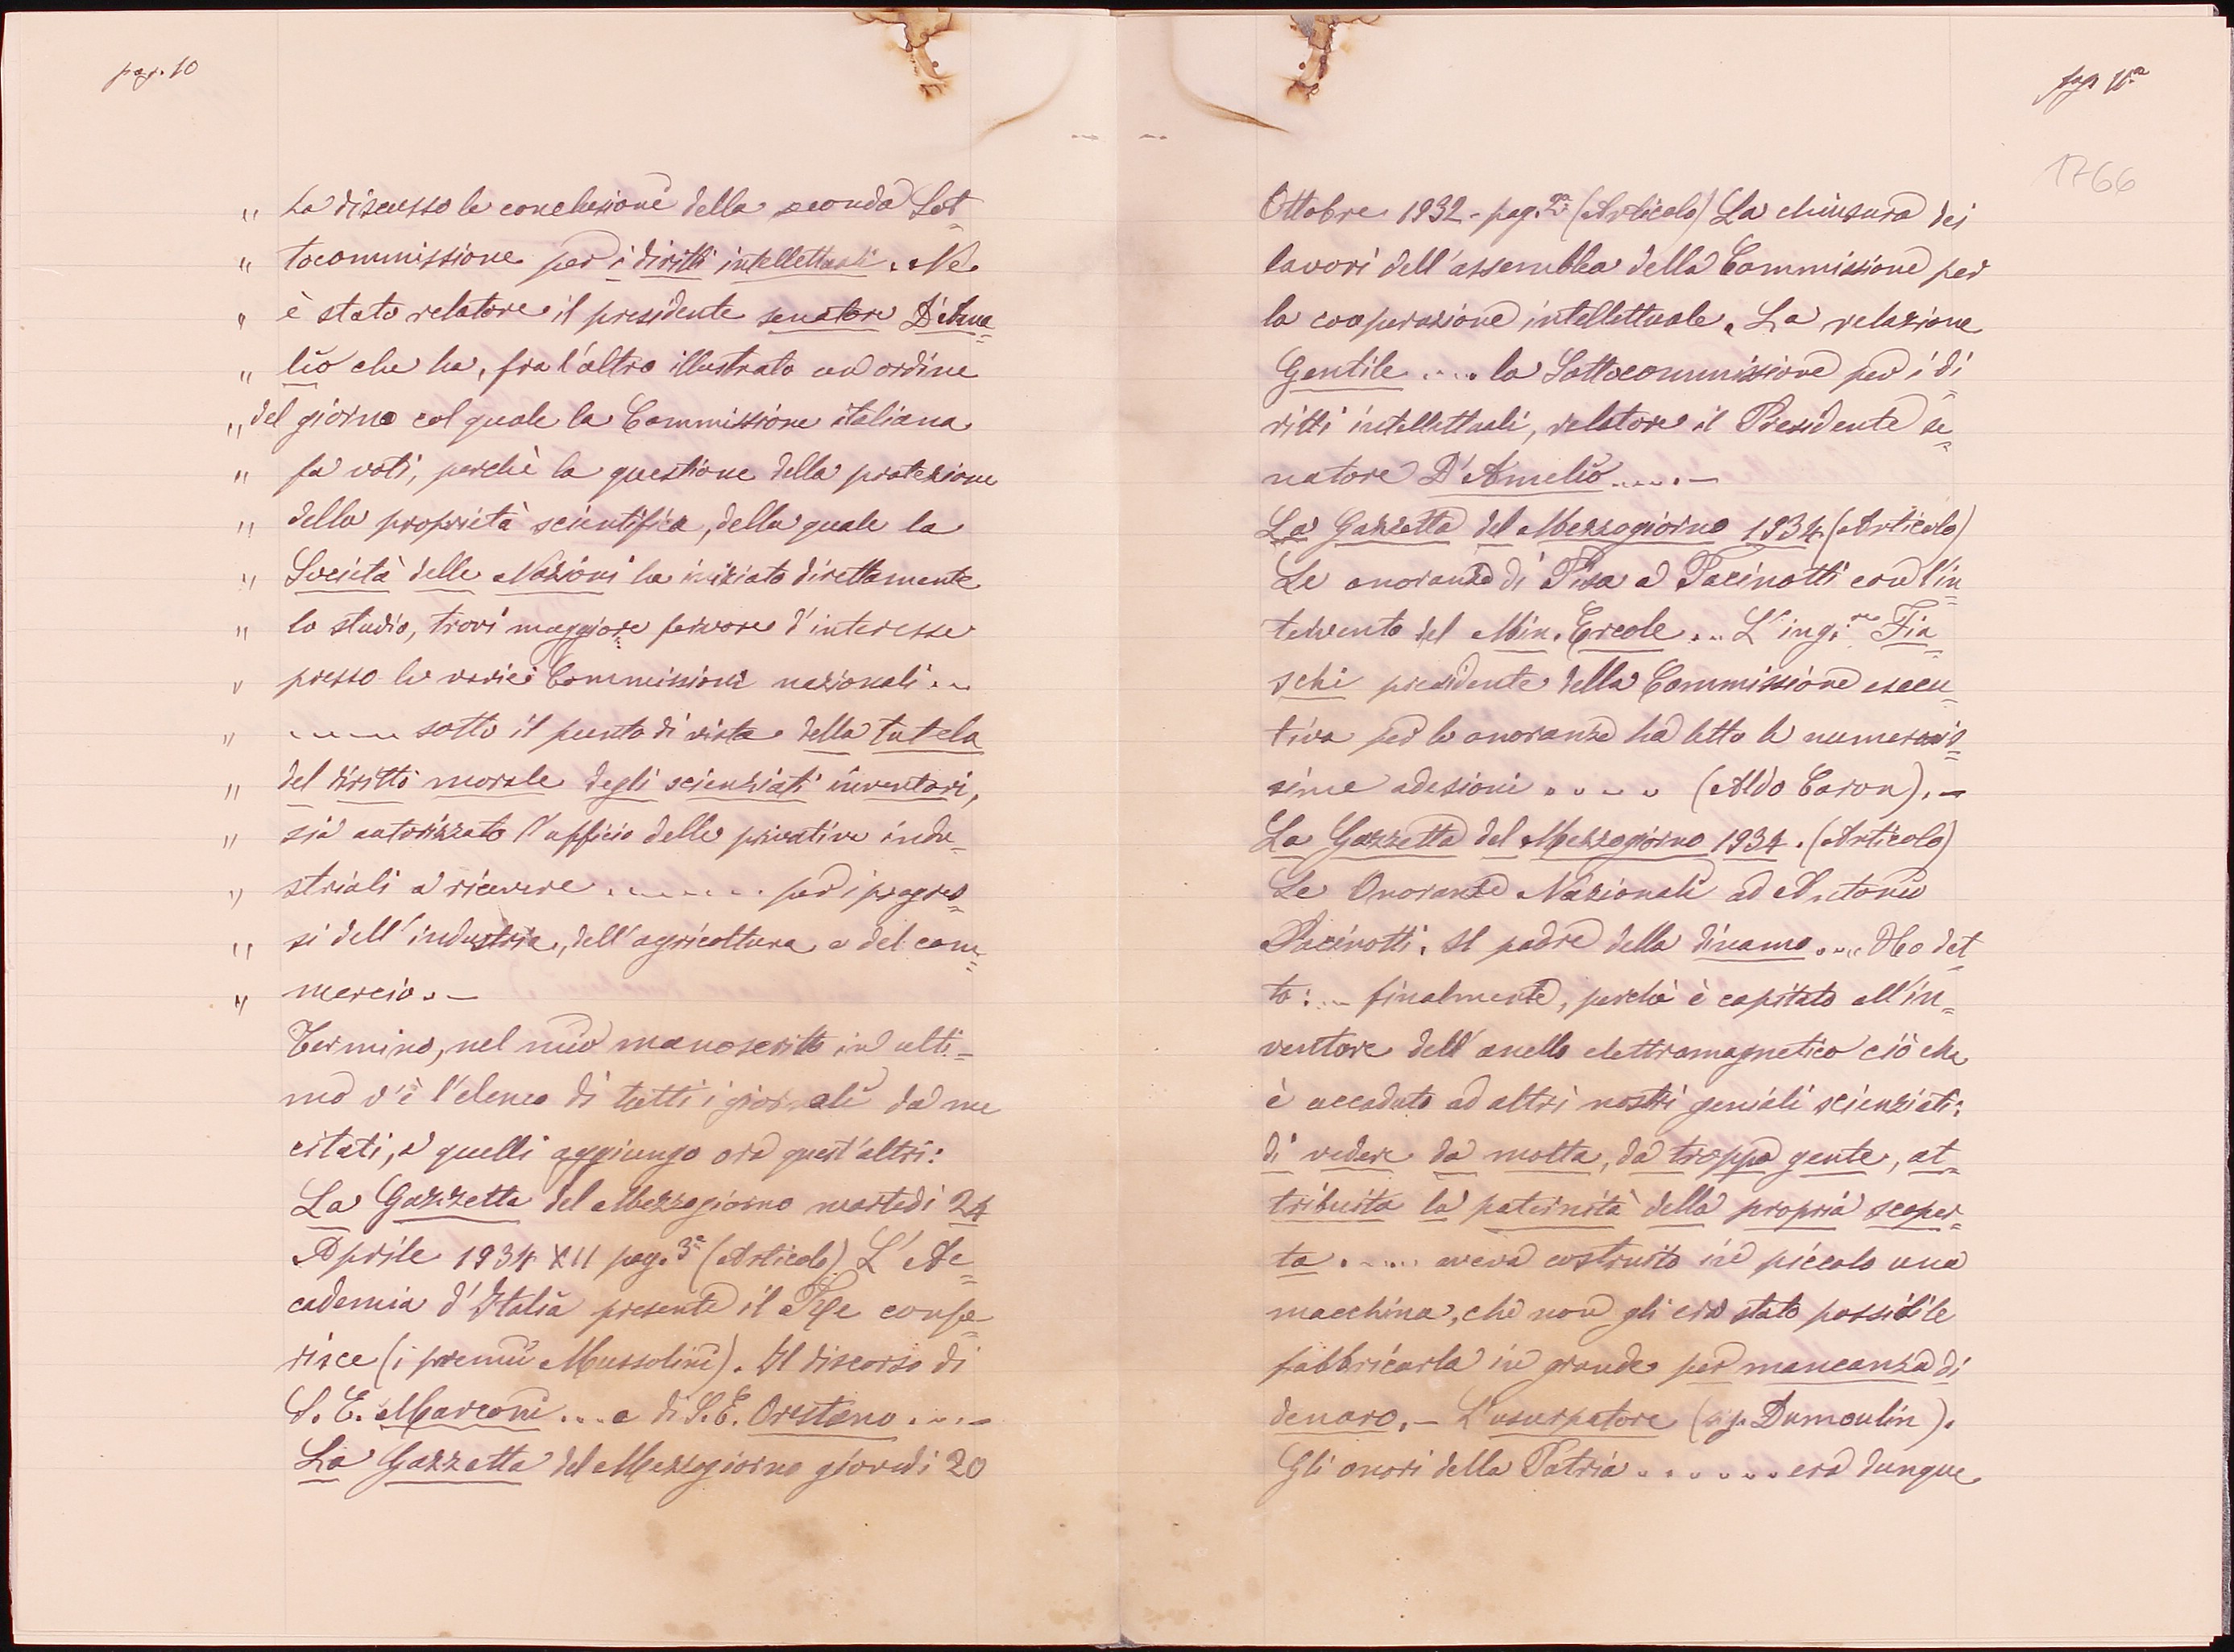 pag. 10
„ ha discusso le conclusione della seconda Sot=
„ tocommissione per i diritti intellettuali. Ne
„ è stato relatore il presidente senatore D'Ame=
„ lio che ha, fra l'altro illustrato un ordine
„ del giorno col quale la Commissione italiana
„ fa voti, perchè la questione della protezione
„ della proprietà scientifica, della quale la
„ Società delle Nazioni ha iniziato direttamente
„ lo studio, trovi maggiore fervore d'interesse
„ presso le varie Commissioni nazionali...
„ ..... sotto il punto di vista della tutela
„ del diritto morale degli scienziati inventori,
„ sia autorizzato l'ufficio delle privative indu=
„ striali a ricevere ....... per i progres=
„ si dell'industria, dell'agricoltura e del com=
„ mercio. –
Termino, nel mio manoscritto in ulti=
mo v'è l'elenco di tutti i giornali da me
citati, a quelli aggiungo ora quest'altri:
La Gazzetta del Mezzogiorno martedì 24
Aprile 1934 XII pag. 3ª (Articolo) L'Ac=
cademia d'Italia presente il Re confe=
risce (i premii Mussolini). Il discorso di
S. E. Marconi .... e di S. E. Orestano ....
La Gazzetta del Mezzogiorno giovedì 20
pag 11ª
1766
Ottobre 1932 - pag. 2ª (Articolo) La chiusura dei
lavori dell'assemblea della Commissione per
la cooperazione intellettuale. La relazione
Gentile .... la Sottocommissione per i di=
ritti intellettuali, relatore il Presidente se=
natore D'Amelio ..... –
La Gazzetta del Mezzogiorno 1934 (Articolo)
Le onoranze di Pisa a Pacinotti con l'in=
tervento del Min. Ercole ... L'ing.re Fia=
schi presidente della Commissione esecu=
tiva per le onoranze ha letto le numerosis=
sime adesioni ..... (Aldo Caron). –
La Gazzetta del Mezzogiorno 1934. (Articolo)
Le Onoranze Nazionali ad Antonio
Pacinotti. Il padre della dinamo .... Ho det=
to: ... finalmente, perchè è capitato all'in=
ventore dell'anello elettromagnetico ciò che
è accaduto ad altri nostri geniali scienziati:
di vedere da molta, da troppa gente, at=
tribuita la paternità della propria scoper=
ta ..... aveva costruito in piccolo una
macchina, che non gli era stato possibile
fabbricarla in grande per mancanza di
denaro. – L'usurpatore (sig. Dumoulin).
Gli onori della Patria ....... era dunque